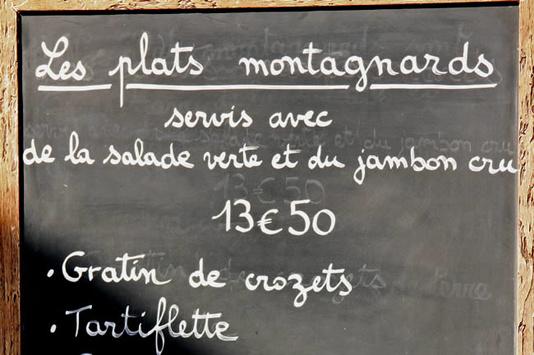 Les plats montagnards
servis avec
de la salade verte et du jambon cru
13€50
• Gratin de crozets
• Tartiflette